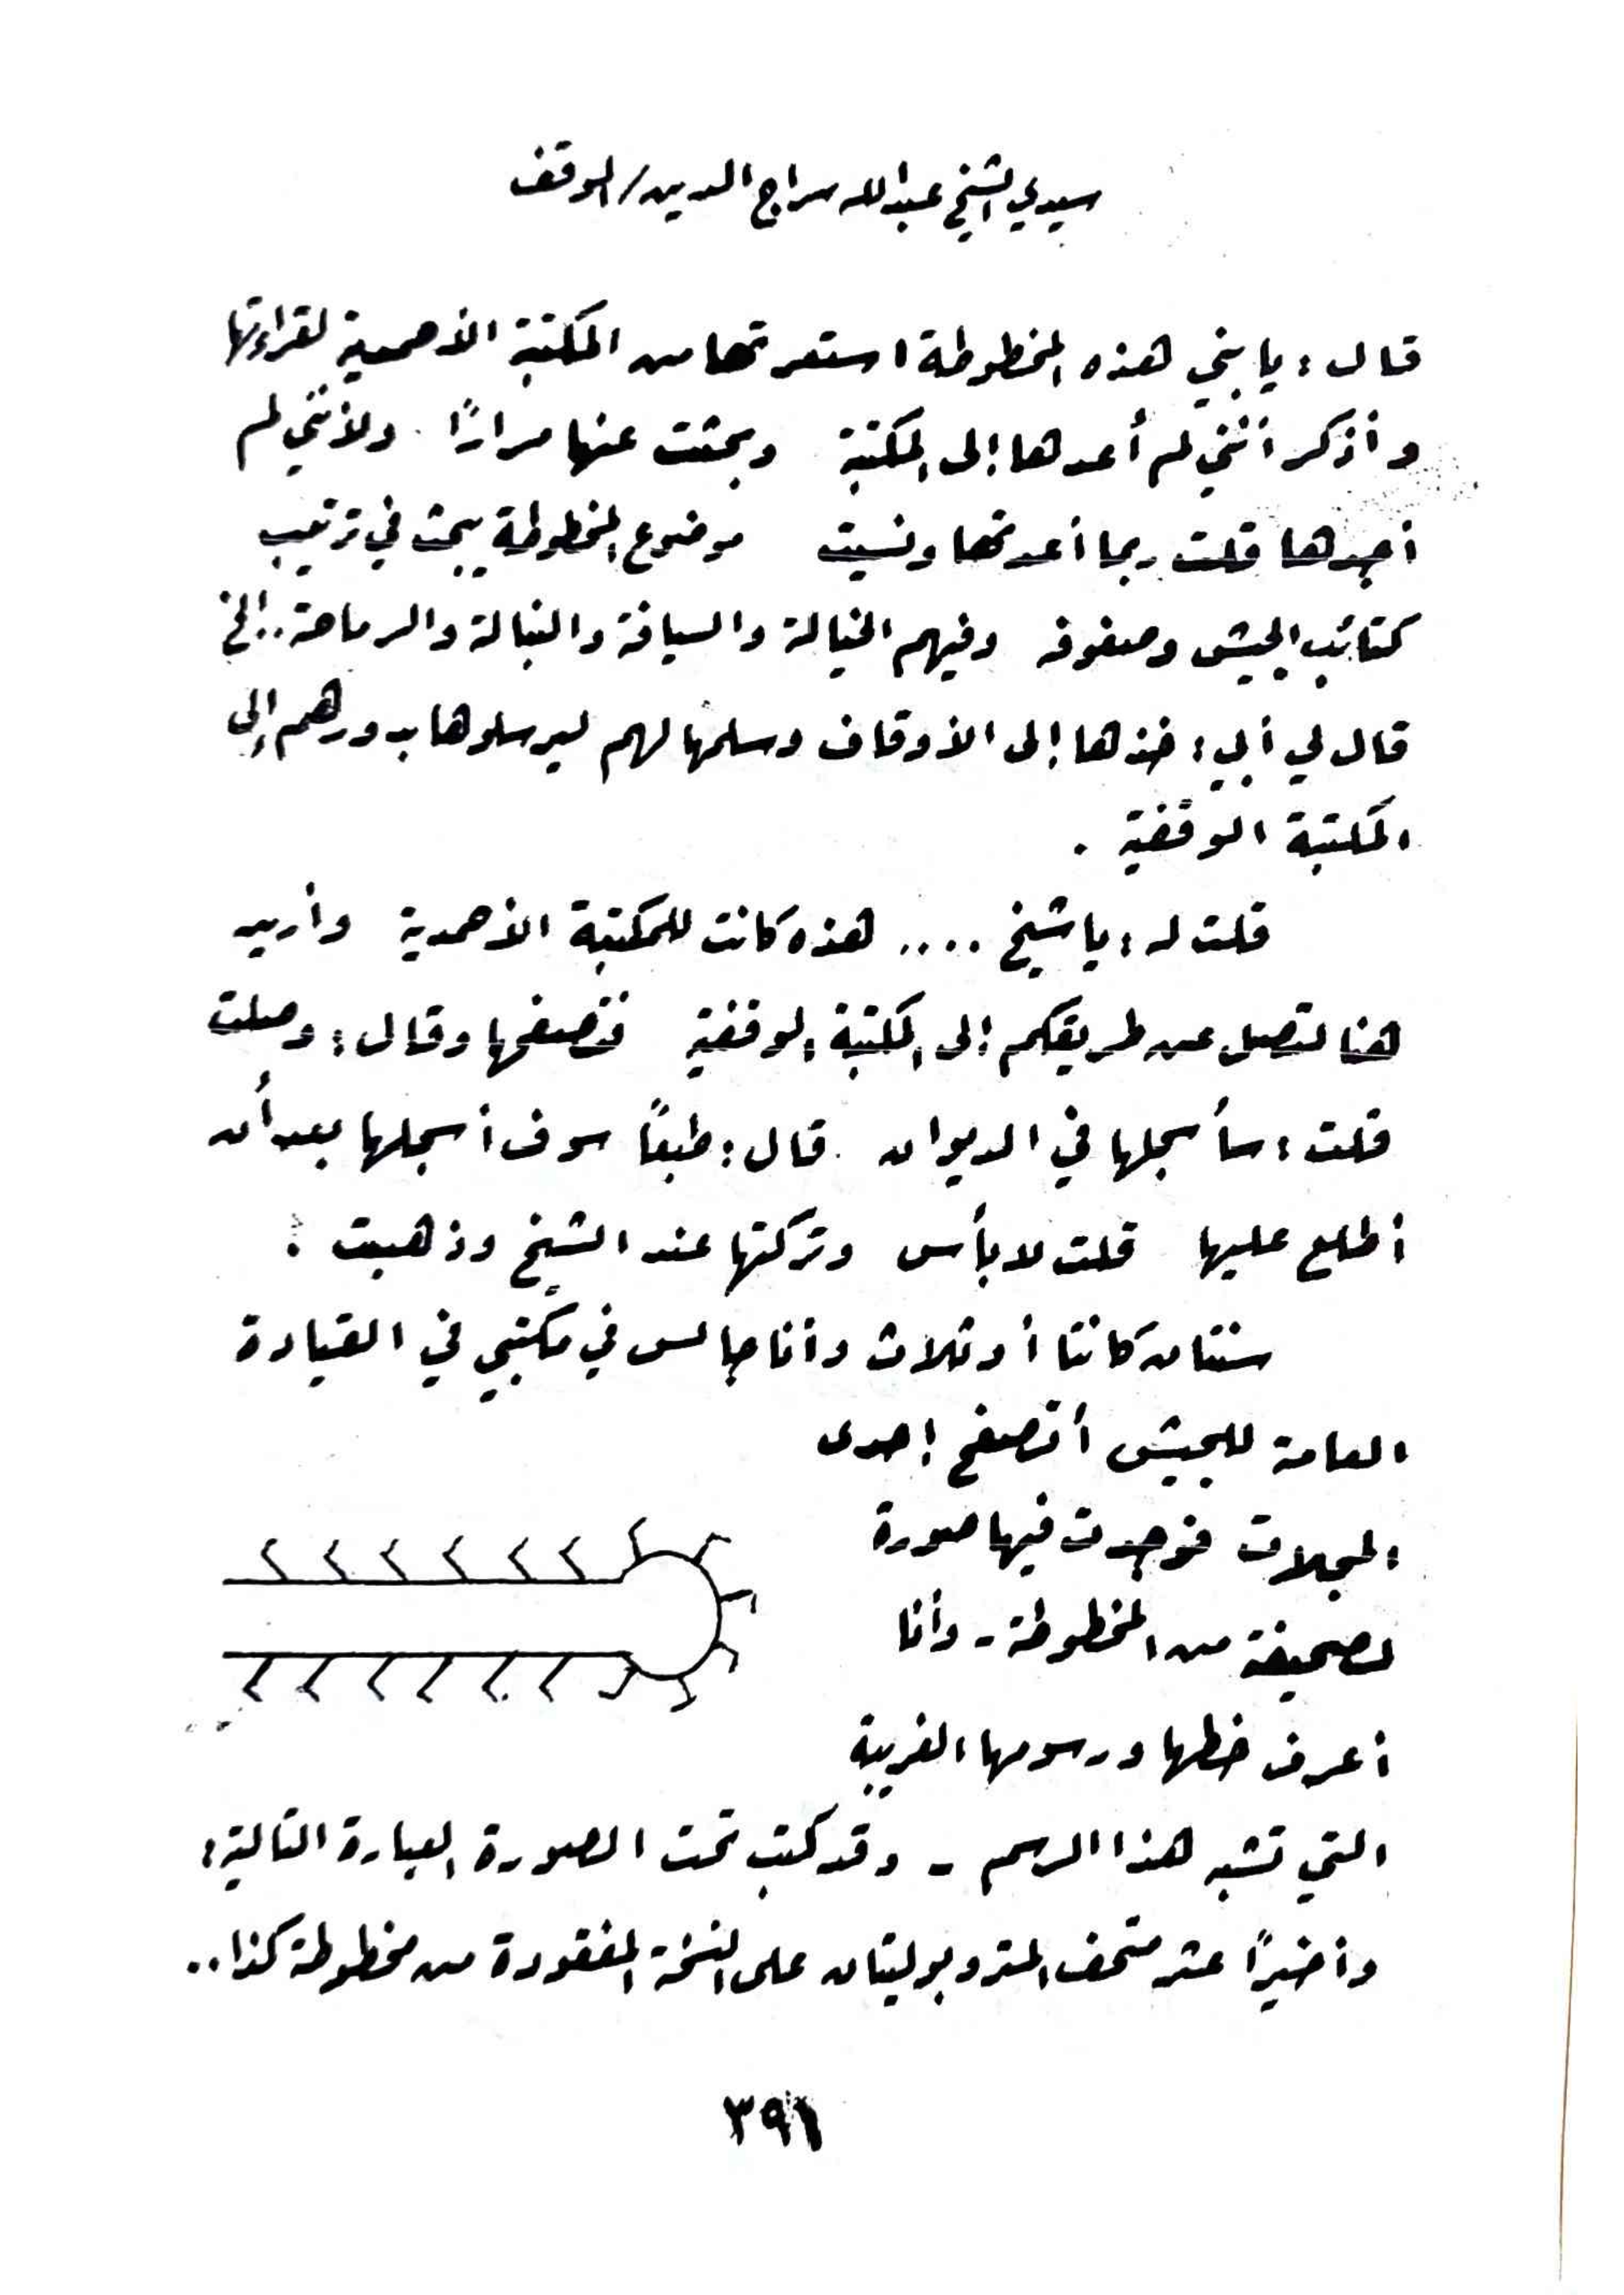 سيدي الشيخ عبدالله سراج الدين / الموقف
قال : يا بني هذه المخطوطة استعرتها من المكتبة الأحمدية لقراءتها
وأذكر أنني لم أعدها إلى المكتبة وبحثت عنها مرارًا . ولأنني لم
أجدها قلت ربما أعدتها ونسيت موضوع المخطوطة يبحث في ترتيب
كتائب الجيش وصفوفه وفيهم الخيالة والسيافة والنبالة والرماحة .. الخ
قال لي أبي : خذها إلى الأوقاف وسلمها لهم ليرسلوها بدورهم إلى
المكتبة الوقفية .
قلت له : يا شيخ .... هذه كانت للمكتبة الأحمدية وأريد
هنا لتصل عن طريقكم إلى المكتبة الوقفية فتصفحها وقال : وصلت
قلت : سأسجلها في الديوان . قال : طبعاً سوف أسجلها بعد أن
أطلع عليها قلت لا بأس وتركتها عند الشيخ وذهبت .
سنتان كانتا أو ثلاث وأنا جالس في مكتبي في القيادة
العامة للجيش أتصفح إحدى
المجلات فوجدت فيها صورة
لصحيفة من المخطوطة - وأنا
أعرف خطها ورسومها الغريبة
التي تشبه هذا الرسم - وقد كتب تحت الصورة العبارة التالية :
وأخيرًا عثر متحف المتروبوليتان على النسخة المفقودة من مخطوطة كذا ..
٣٩١